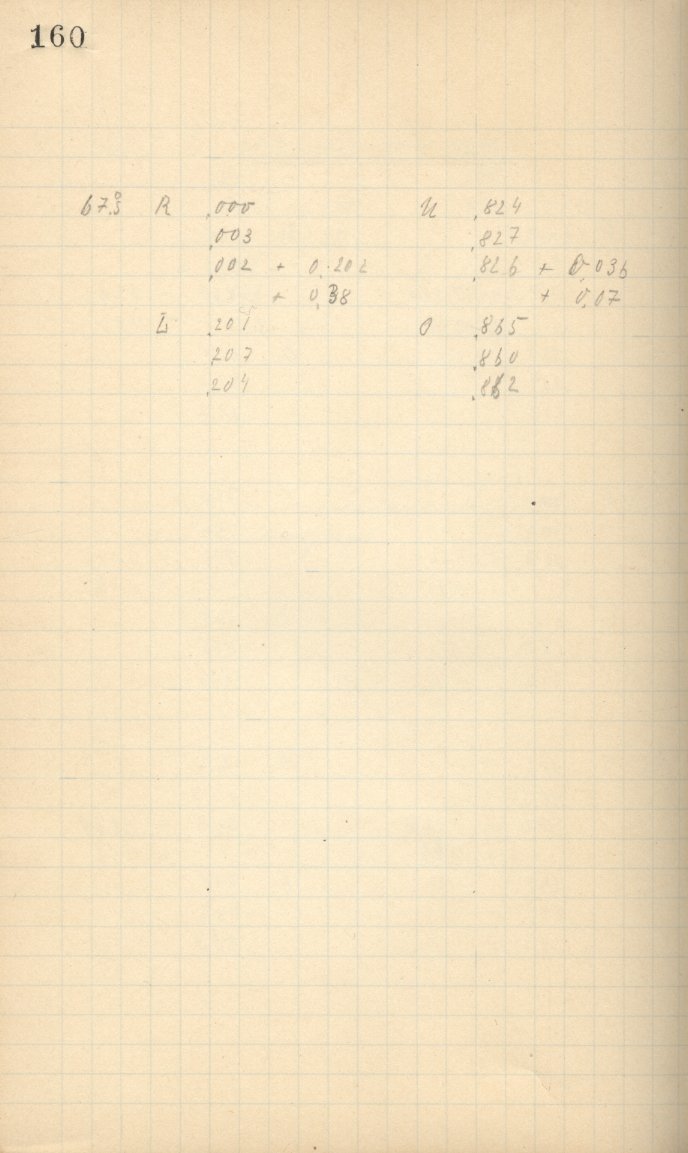 160
67.°3 R .000 U .824
.003 .827
.002 + 0.202 .826 + 0.036
+ 0.38 + 0.07
L .201 O .865
.207 .860
.204 .862